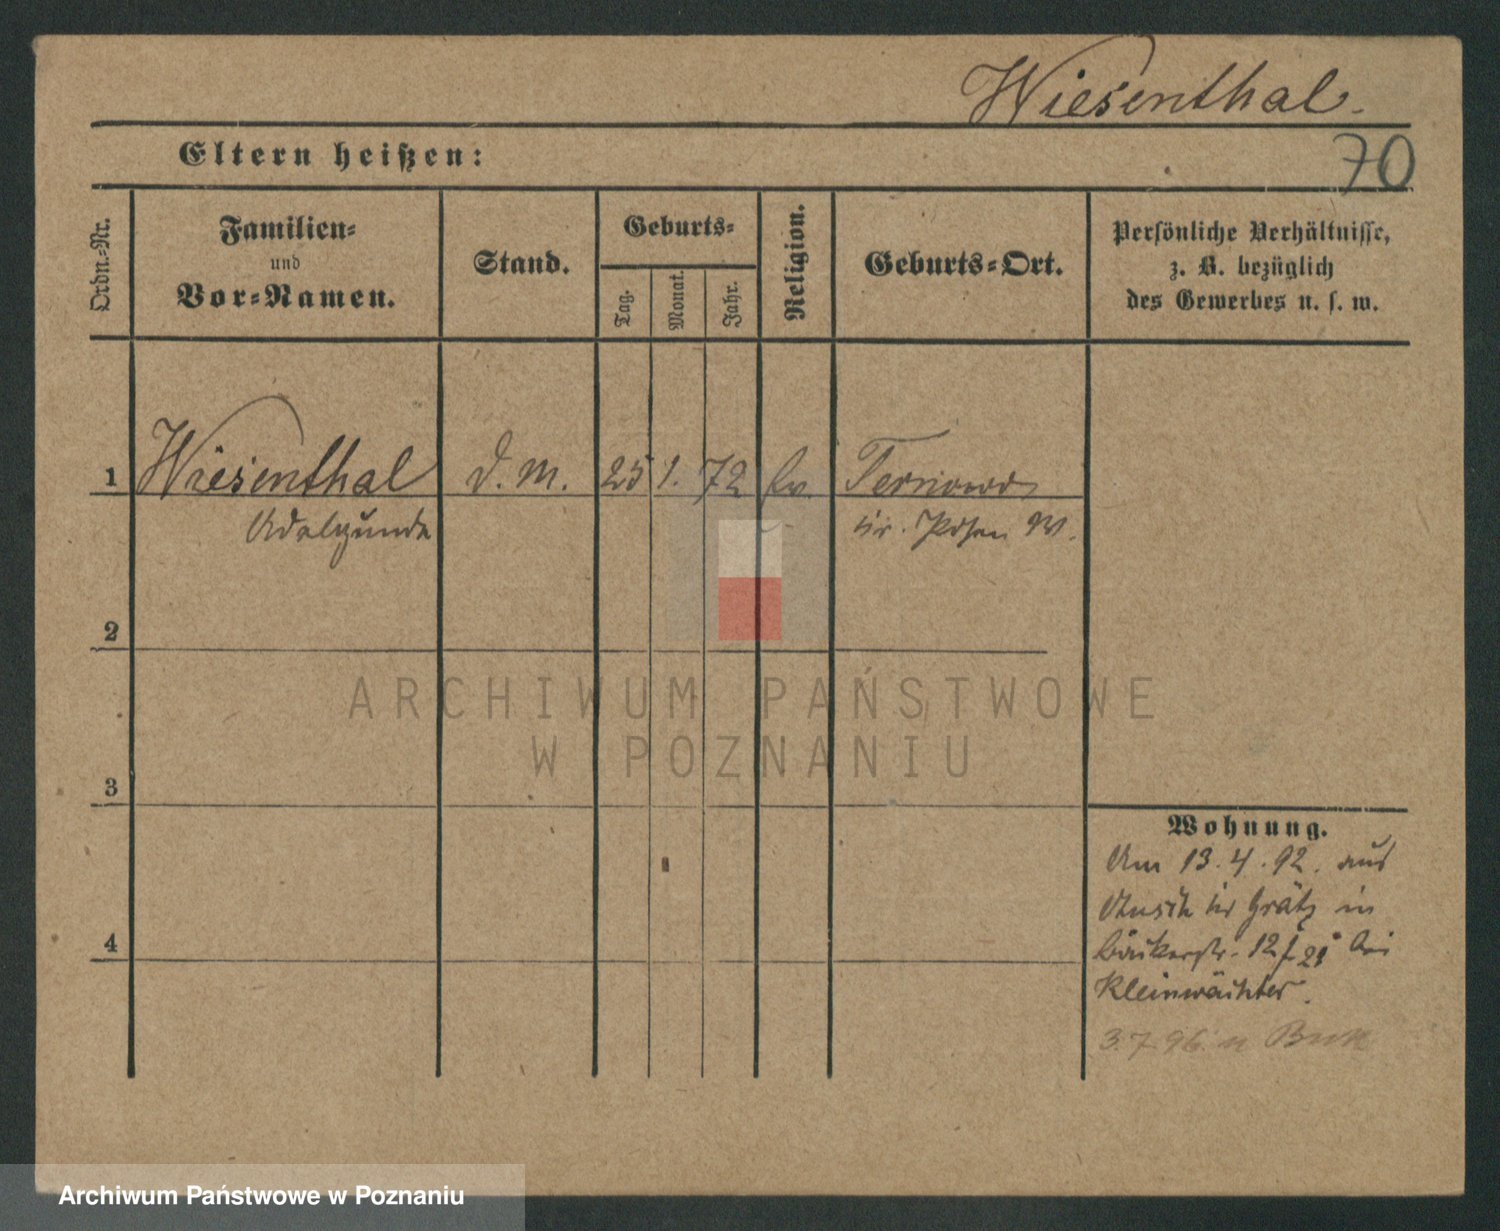 Wiesenthal.
70
Eltern heißen:
Ordn.-Nr.
Familien-
und
Vor-Namen.
Stand.
Geburts-
Tag.
Monat.
Jahr.
Religion.
Geburts-Ort.
Persönliche Verhältnisse,
z. B. bezüglich
des Gewerbes u. s. w.
1 Wiesenthal D. M. 25 1. 72 Ev. Ternowo
Adelgunde Kr. Posen W.
2
3
4
Wohnung.
Am 13.4.92. aus
Kr Grätz in
Bäckerstr. 12/ 21 bei
Kleinwächter.
3.7.96. n Buk
ARCHIWUM PAŃSTWOWE
W POZNANIU
Archiwum Państwowe w Poznaniu